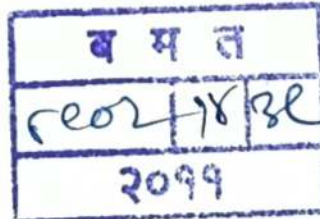 ब म त
८९०२ १४ ३९
२०११